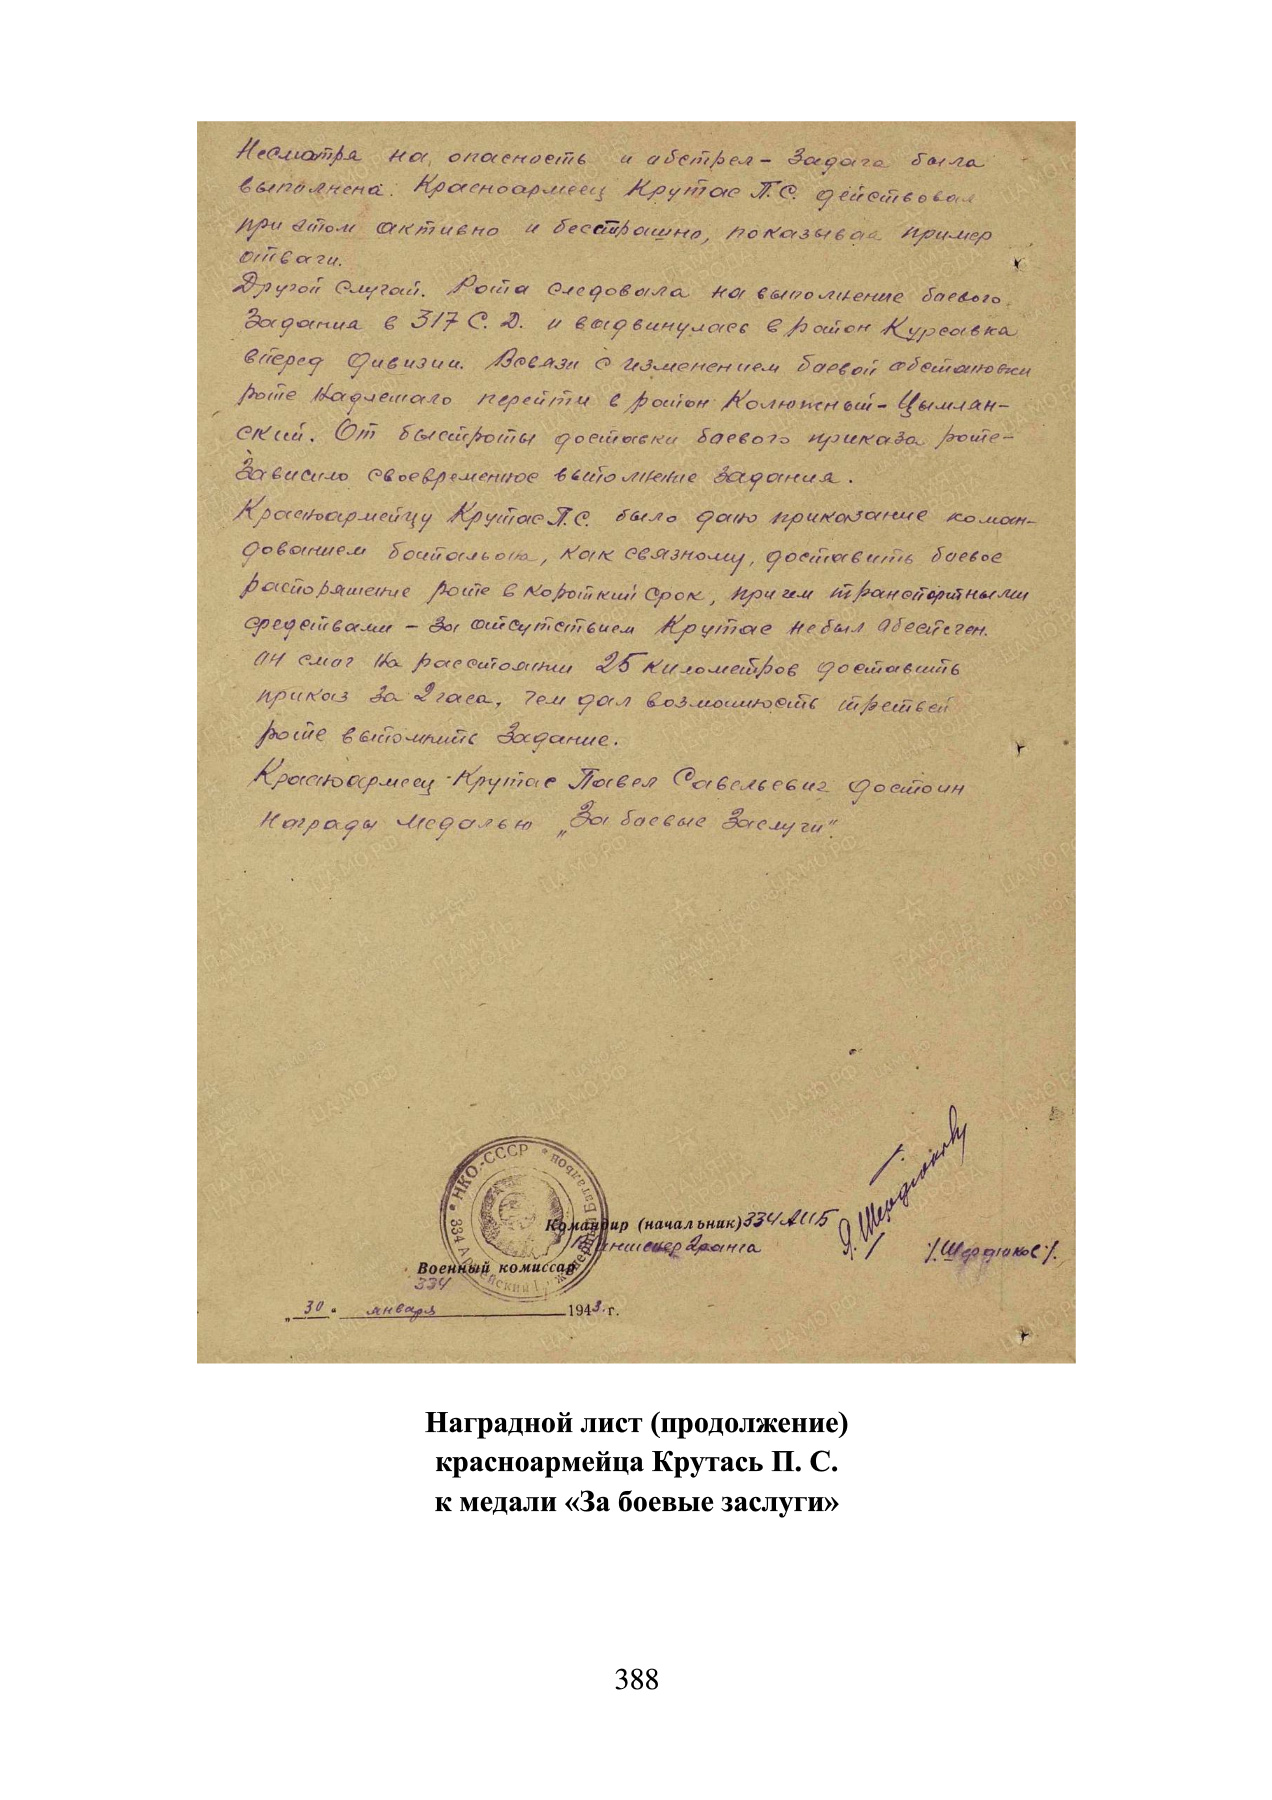 Несмотря на опасность и обстрел – задача была
выполнена. Красноармеец Крутас П.С. действовал
при этом активно и бесстрашно, показывая пример
отваги.
Другой случай. Рота следовала на выполнение боевого
задания в 317 С.Д. и выдвинулась в район Курсавка
вперед дивизии. Всвязи с изменением боевой обстановки
роте надлежало перейти в район Колюжный – Цымлян-
ский. От быстроты доставки боевого приказа роте –
зависило своевременное выполнение задания.
Красноармейцу Крутас П.С. было дано приказание коман-
дованием баитальона, как связному, доставить боевое
распоряжение роте в короткий срок, причем транспортными
средствами – за отсутствием Крутас не был обеспечен.
он смог на расстоянии 25 километров доставить
приказ за 2 часа, чем дал возможность третьей
роте выполнить задание.
Красноармеец Крутас Павел Савельевич достоин
награды медалью „За боевые заслуги".
НКО-СССР
334 Армейский Инженерный Батальон
Командир (начальник) 334 АИБ
Инженер 2 ранга
/Шердюков/.
Военный комиссар
334
„30" января 1943 г.
ПАМЯТЬ НАРОДА
ЦАМО.РФ
Наградной лист (продолжение)
красноармейца Крутась П. С.
к медали «За боевые заслуги»
388